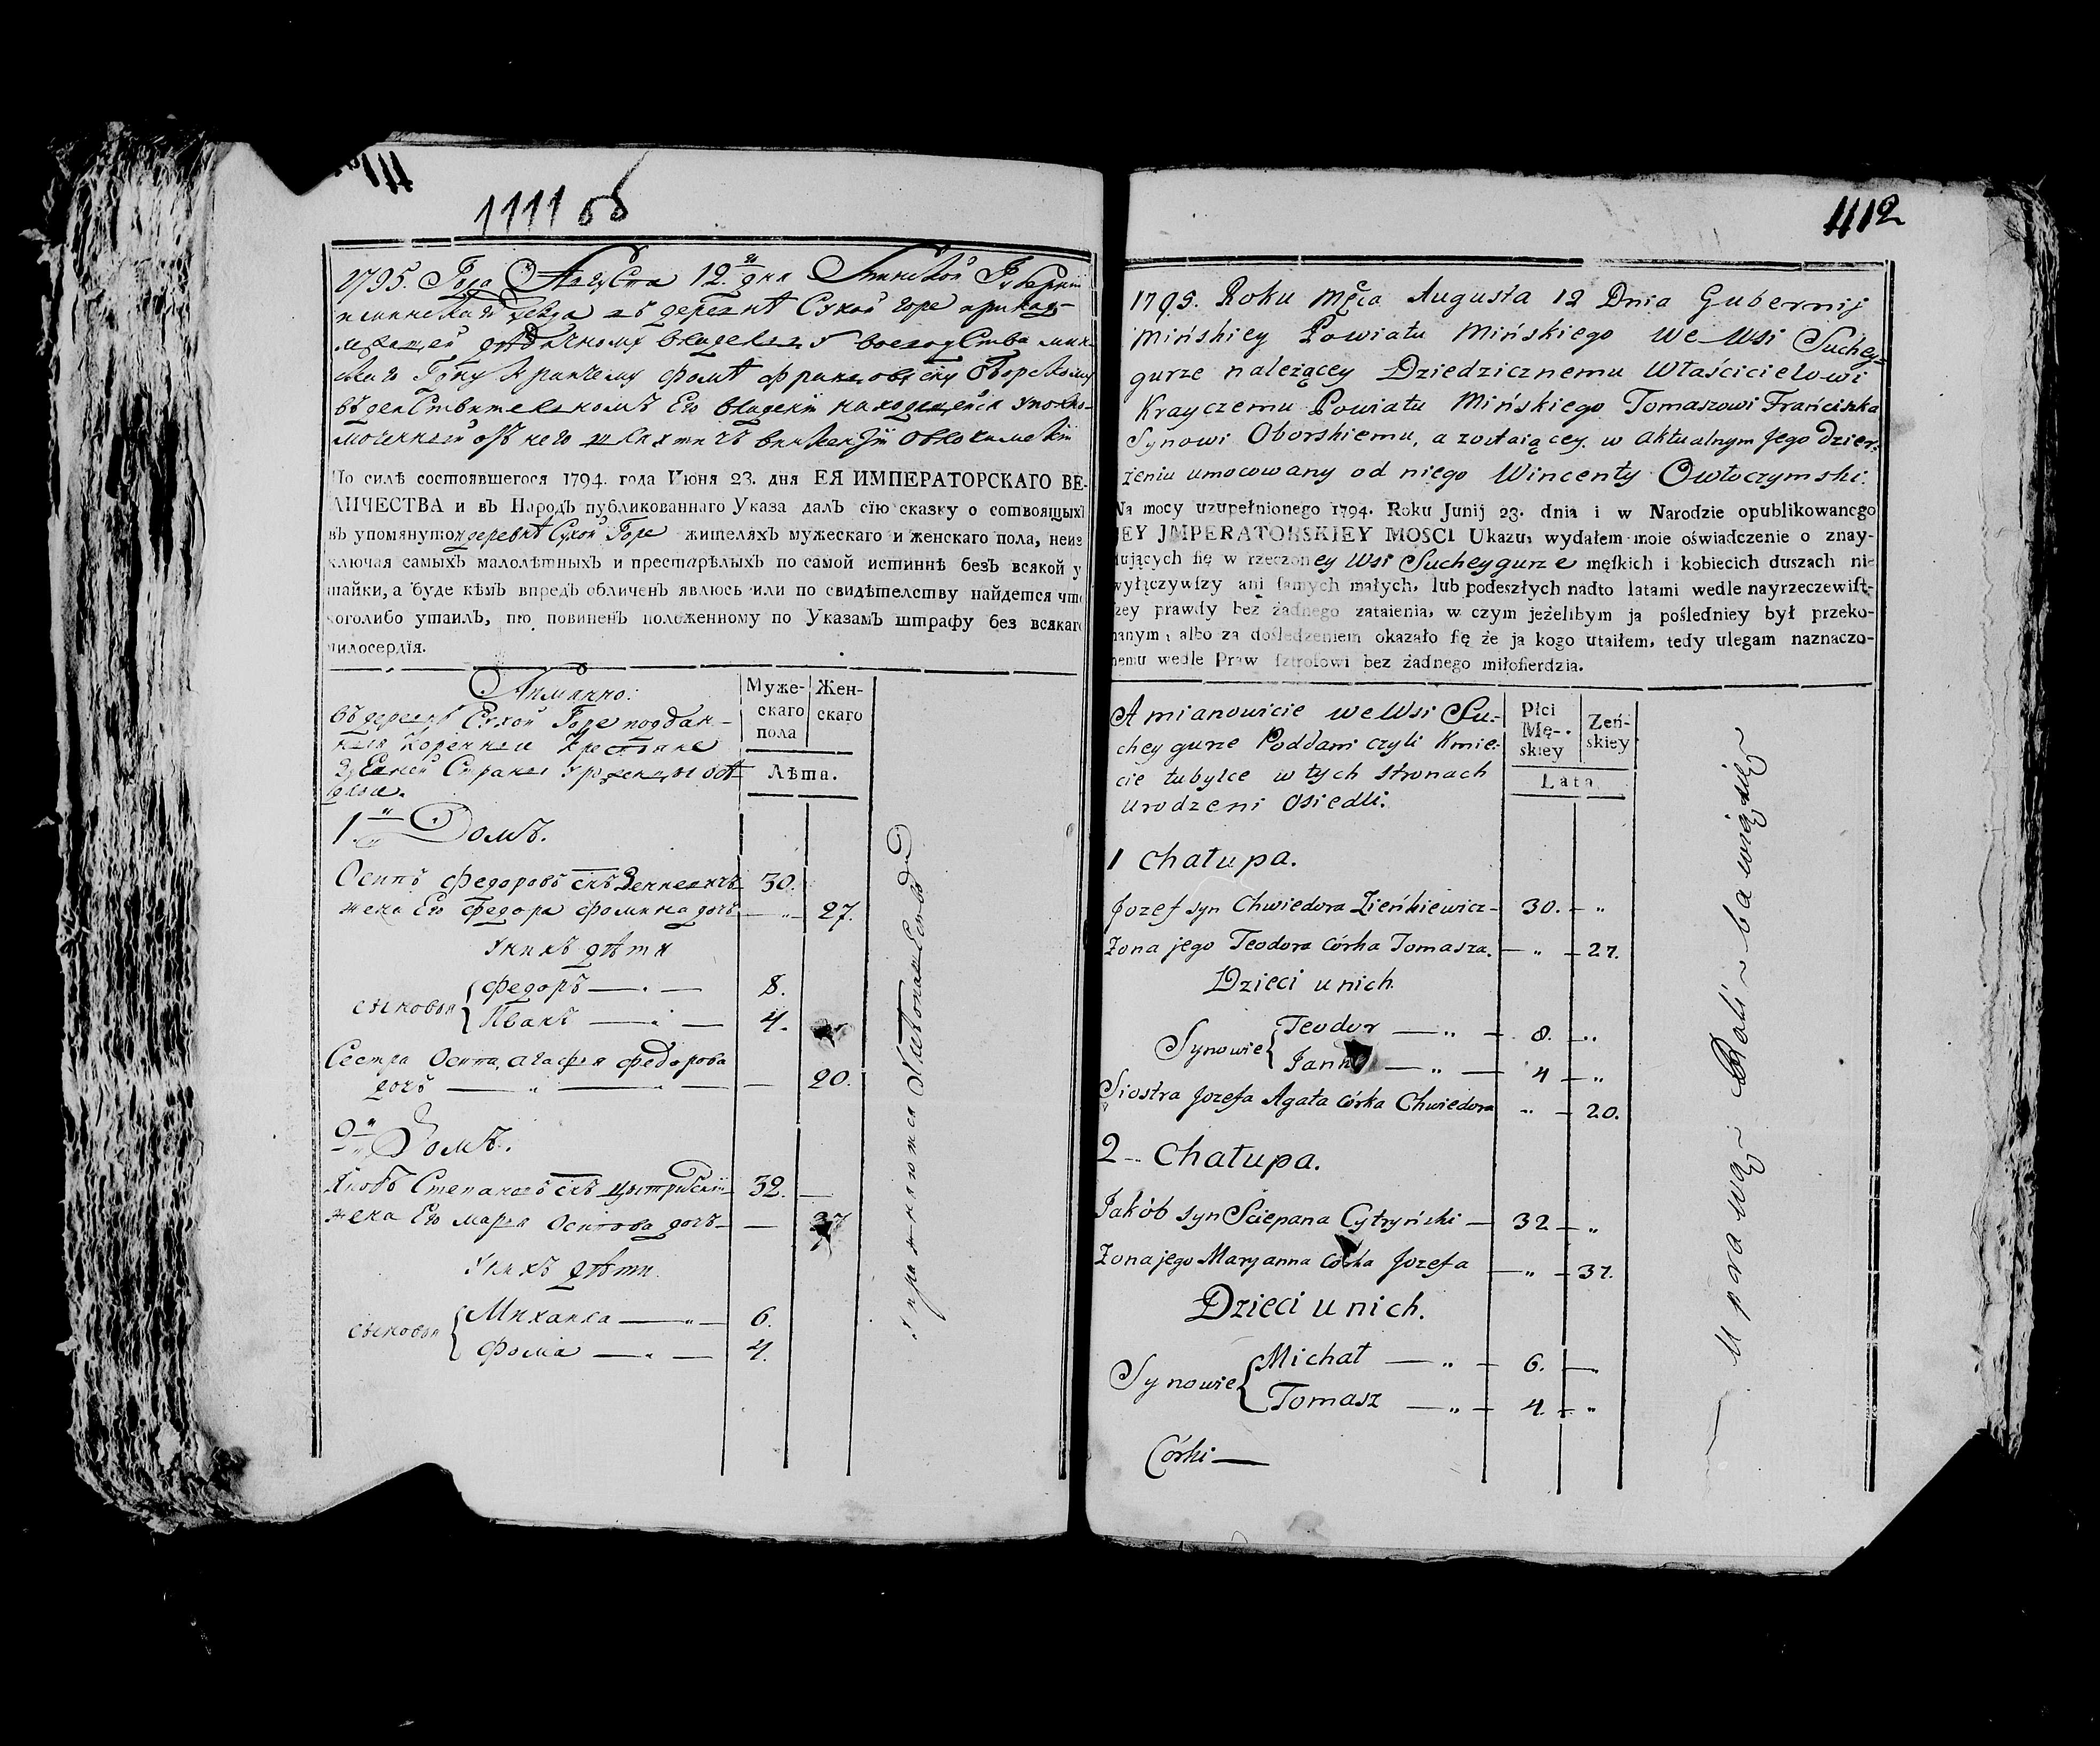 1111 об
1795. Года Августа 12 дня Минской Губернїи
Минскаго уезда въ деревнѣ Сухой горе принад-
лежащей дѣдичному владельцу воеводства мин-
скаго Крайчему Фомѣ Францовѣ сну Оборскому
въ действителномъ Его владенїи находящейся уполно-
моченный отъ него шляхтичъ Викентїй Овлочимскїй
По силѣ состоявшегося 1794. года Июня 23. дня ЕЯ ИМПЕРАТОРСКАГО ВЕ-
ЛИЧЕСТВА и въ Народъ публикованнаго Указа далъ сїю сказку о сотвоящыхъ
въ упомянутой деревнѣ Сухой Горе жителяхъ мужескаго и женскаго пола, неиз
ключая самыхъ малолѣтныхъ и престарѣлыхъ по самой истиннѣ безъ всякой у
тайки, а буде кѣмъ впредь обличенъ явлюсь или по свидѣтелству найдется что
коголибо утаилъ, то повиненъ положенному по Указамъ штрафу без всякаго
милосердїя.
Аимянно:
въ деревнѣ Сухой Горе поддан-
ныя Коренныи Крестьяне
Мужескаго пола
Женскаго
Лѣта.
1 Домъ.
Осипъ Федоровъ снъ Зенкевичъ 30.
жена Его Федора Фомина дочь — „ — 27.
У нихъ дѣти
сыновья { Федоръ — . — 8.
Иванъ — . — 4.
Сестра Осипа, Агафья Федорова
дочь — „ — . — 20.
2 Домъ.
Яковъ Степановъ снъ Цытринскїй 32. —
жена Его Марья Осипова дочь — — 37
У нихъ дѣти
сыновья { Михайла — „ — 6.
Фома — . — 4.
упражняются Хлебопашеством
1112
1795. Roku Mſca Augusta 12 Dnia Gubernij
Mińskiey Powiatu Mińskiego We Wsi Suchey-
gurze należącey Dziedzicznemu Właścicielowi
Krayczemu Powiatu Mińskiego Tomaszowi Franciszka
Synowi Oborskiemu, a zostaiącey w aktualnym Jego Dzier-
żeniu umocowany od niego Wincenty Owłoczymski.
Na mocy uzupełnionego 1794. Roku Junij 23. dnia i w Narodzie opublikowanego
JEY JMPERATORSKIEY MOSCI Ukazu, wydałem moie oświadczenie o znay-
dujących ſię w rzeczoney Wsi Sucheygurze męſkich i kobiecich duszach nie
wyłączywſzy ani ſamych małych, lub podeszłych nadto latami wedle nayrzeczewiſt-
ſzey prawdy bez żadnego zataienia, w czym jeżelibym ja poſledniey był przeko-
nanym, albo za doſledzeniem okazało ſię że ja kogo utaiłem, tedy ulegam naznaczo-
nemu wedle Praw ſztrofowi bez żadnego miłoſierdzia.
A mianowicie we Wsi Su-
chey gurze Poddani czyli Kmie-
cie tubylce w tych stronach
urodzeni Osiedli.
Płci Mę-skiey
Żeń-skiey
Lata
1 Chałupa.
Jozef syn Chwiedora Zieńkiewicz — 30. — „
Żona jego Teodora córka Tomasza. — „ — 27.
Dzieci u nich.
Synowie { Teodor — „ — 8. — „
Jan — „ — 4 — „
Siostra Jozefa Agata córka Chwiedora „ — 20.
2 Chałupa.
Jakób syn Sciepana Cytryński — 32 — „
Żona jego Maryanna córka Jozefa — „ — 37.
Dzieci u nich.
Synowie { Michał — „ — 6. — „
Tomasz — „ — 4. — „
Córki —
Uprawą Roli bawią się